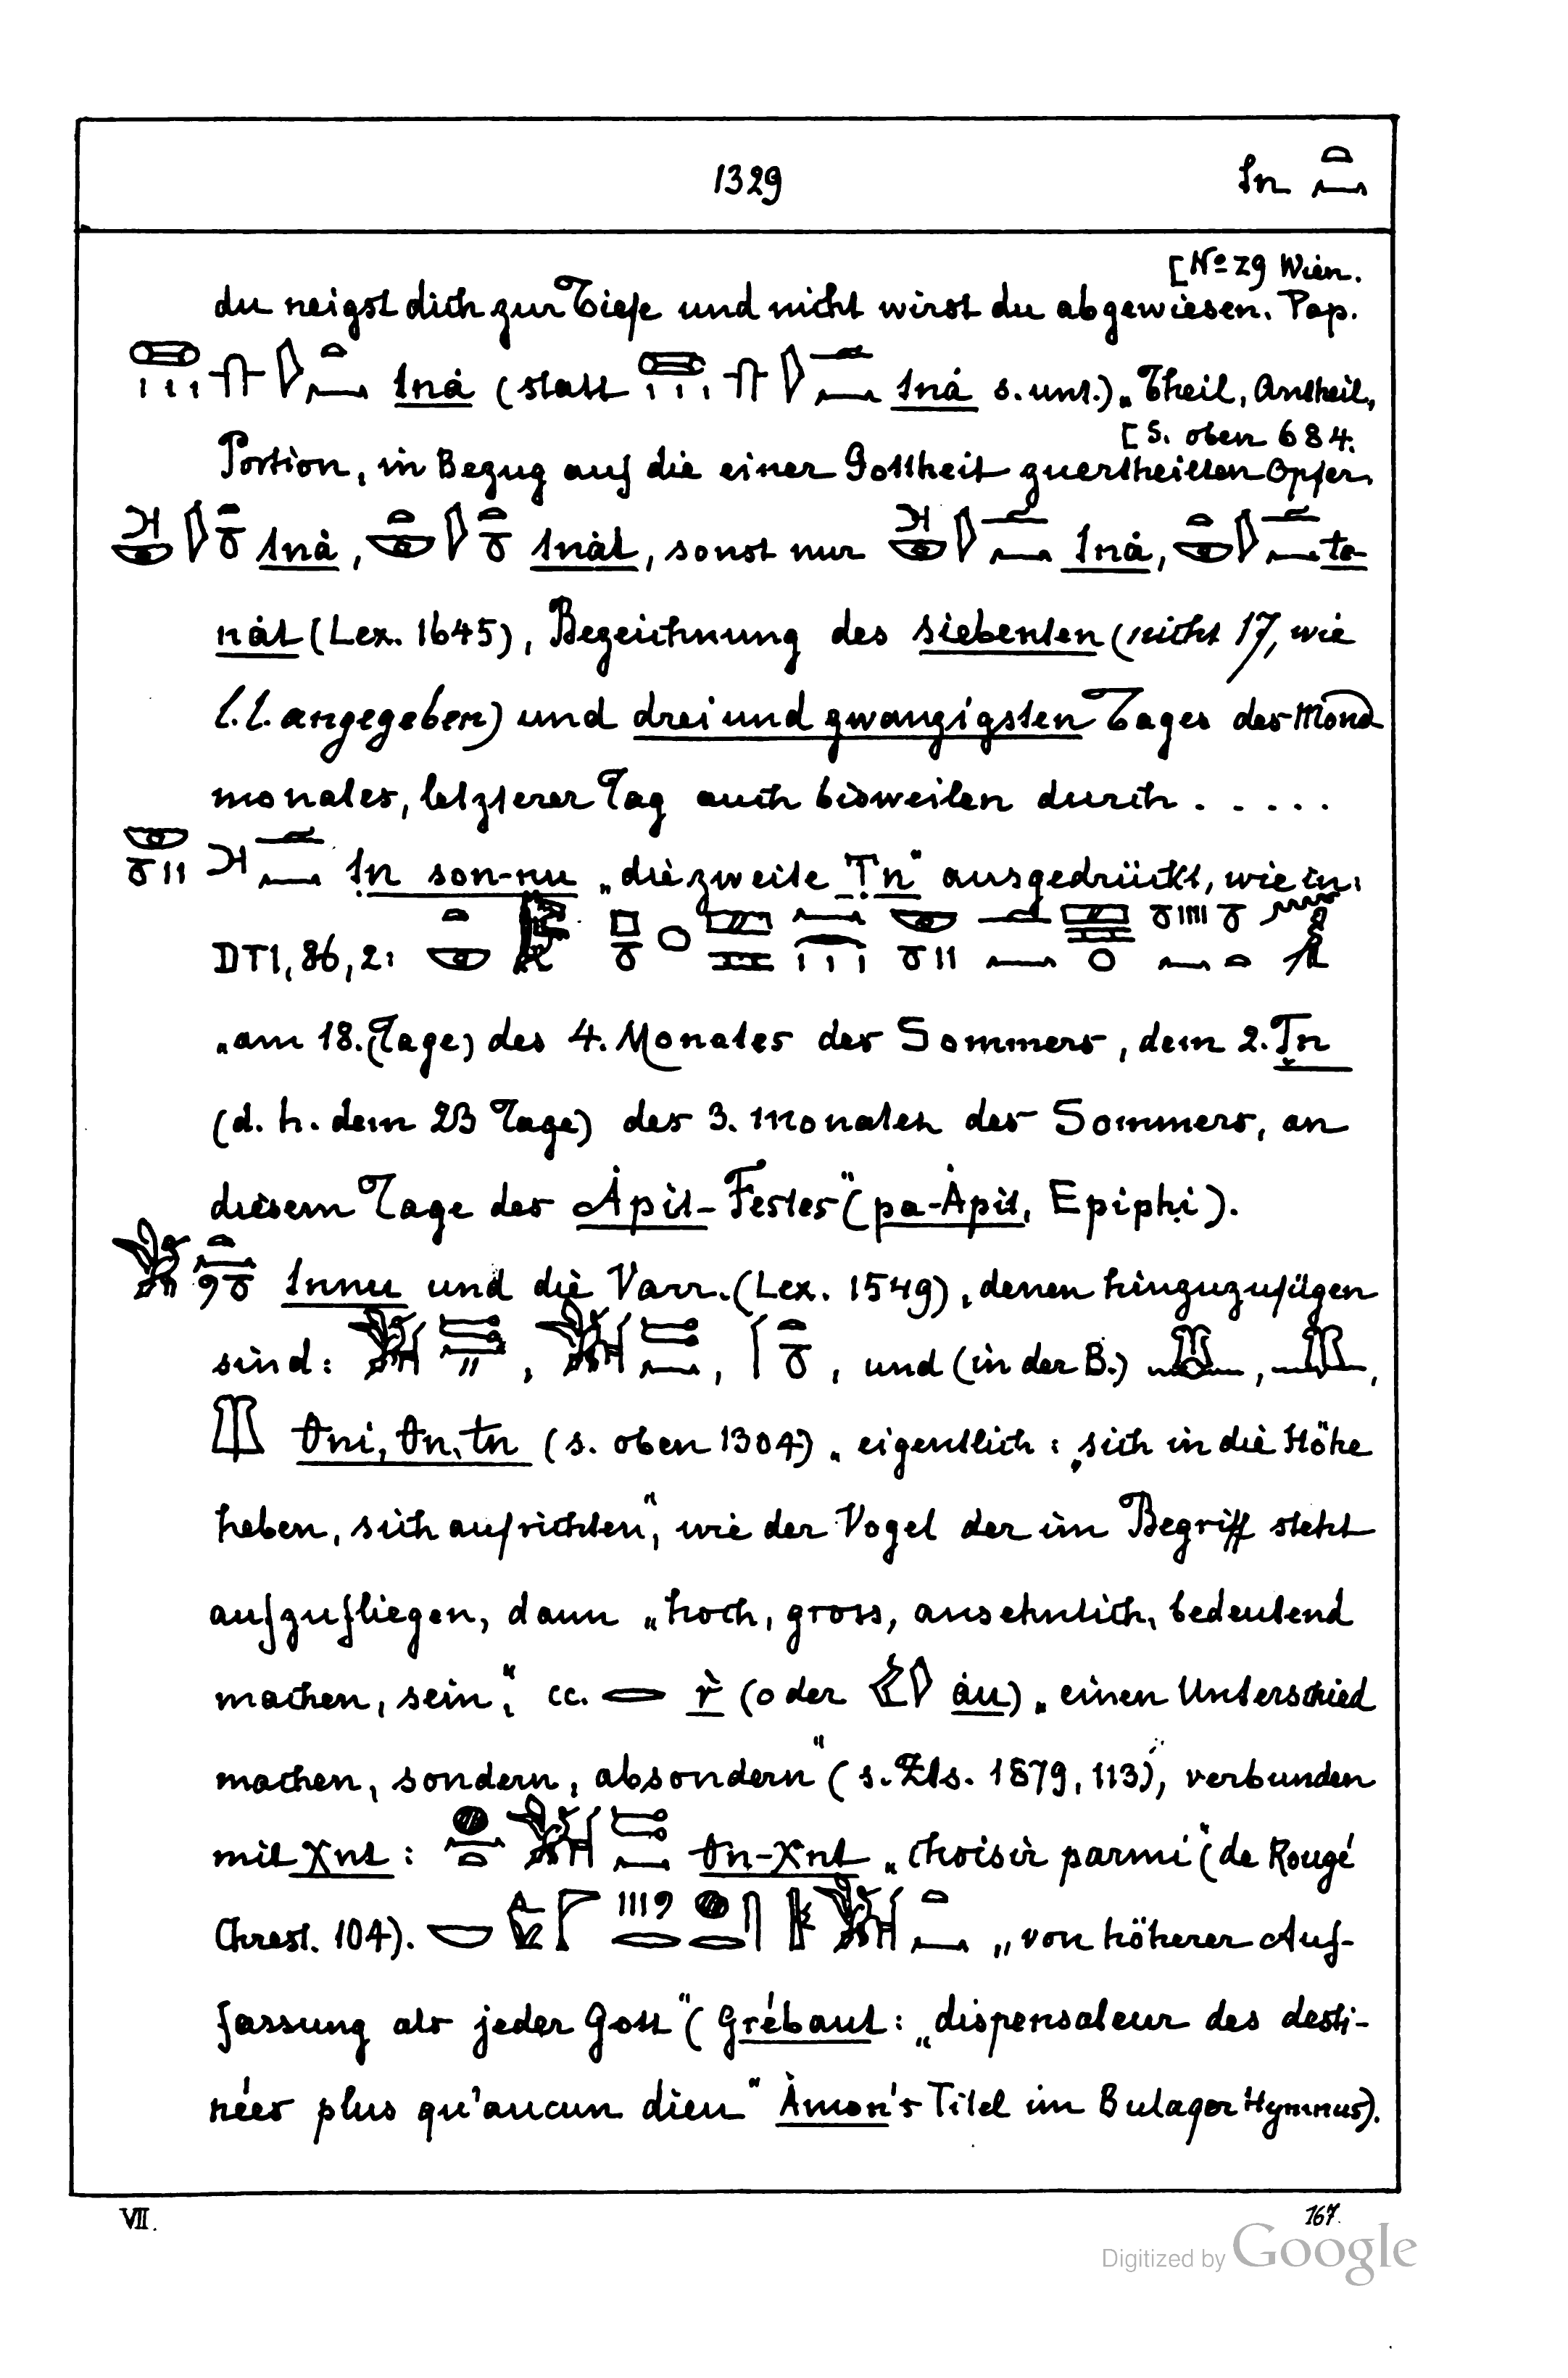 1329
tn
[No 29 Wien.
du neigst dich zur Tiefe und nicht wirst du abgewiesen. Pap.
tnȧ (statt tnȧ s. unt.) „Theil, Antheil,
[S. oben 684.
Portion, in Bezug auf die einer Gottheit zuertheilten Opfer.
tnȧ, tnȧt, sonst nur tnȧ, te
nȧt (Lex. 1645), Bezeichnung des siebenten (nicht 17, wie
l.l. angegeben) und dreiundzwanzigsten Tages des Mond
monates, letzterer Tag auch bisweilen durch . . . . .
tn son-nu „die zweite Tn" ausgedrückt, wie in:
DTI, 86, 2:
„am 18. (Tage) des 4. Monates des Sommers, dem 2. Tn
(d. h. dem 23 Tage) des 3. Monates des Sommers, an
diesem Tage des Ȧpit-Festes" (pa-Ȧpit, Epiphi).
tnnu und die Varr. (Lex. 1549), denen hinzuzufügen
sind: , , , und (in der B.) , ,
θni, θn, tn (s. oben 1304) „eigentlich: „sich in die Höhe
heben, sich aufrichten", wie der Vogel der im Begriff steht
aufzufliegen, dann „hoch, gross, ansehnlich, bedeutend
machen, sein", cc. r (oder ȧu) „einen Unterschied
machen, sondern, absondern" (s. Zts. 1879, 113), verbunden
mit χnt: θn-χnt „choisir parmi" (de Rougé
Chrest. 104). „von höherer Auf-
fassung als jeder Gott" (Grébaut: „dispensateur des desti-
nées plus qu'aucun dieu" Ȧmon's Titel im Bulaqer Hymnus).
VII.
167.
Digitized by Google